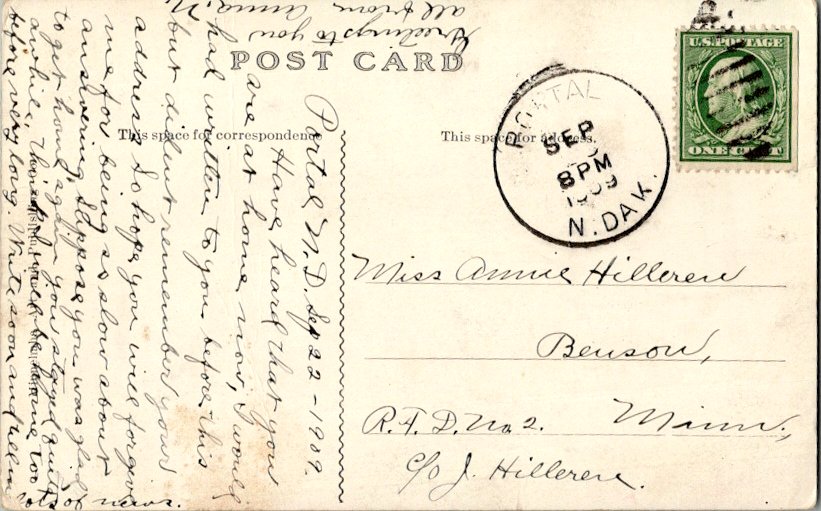 POST CARD
This space for correspondence
This space for address.
U.S. POSTAGE
ONE CENT
PORTAL
SEP
8 PM
1909
N. DAK.
Miss Annie Hilleren
Benson,
R.F.D. No 2. Minn.,
c/o J. Hilleren.
Portal N.D. Sep 22 - 1909.
Have heard that you
are at home now, I would
had written to you before this
but dident remember your
address so hope you will forgive
me for being so slow about
answering. Suppose you was glad
to get home again you stayed quite
awhile. Think I will be home too
before very long. Write soon and tell me
lots of news.
Greetings to you
all from Anna. N.